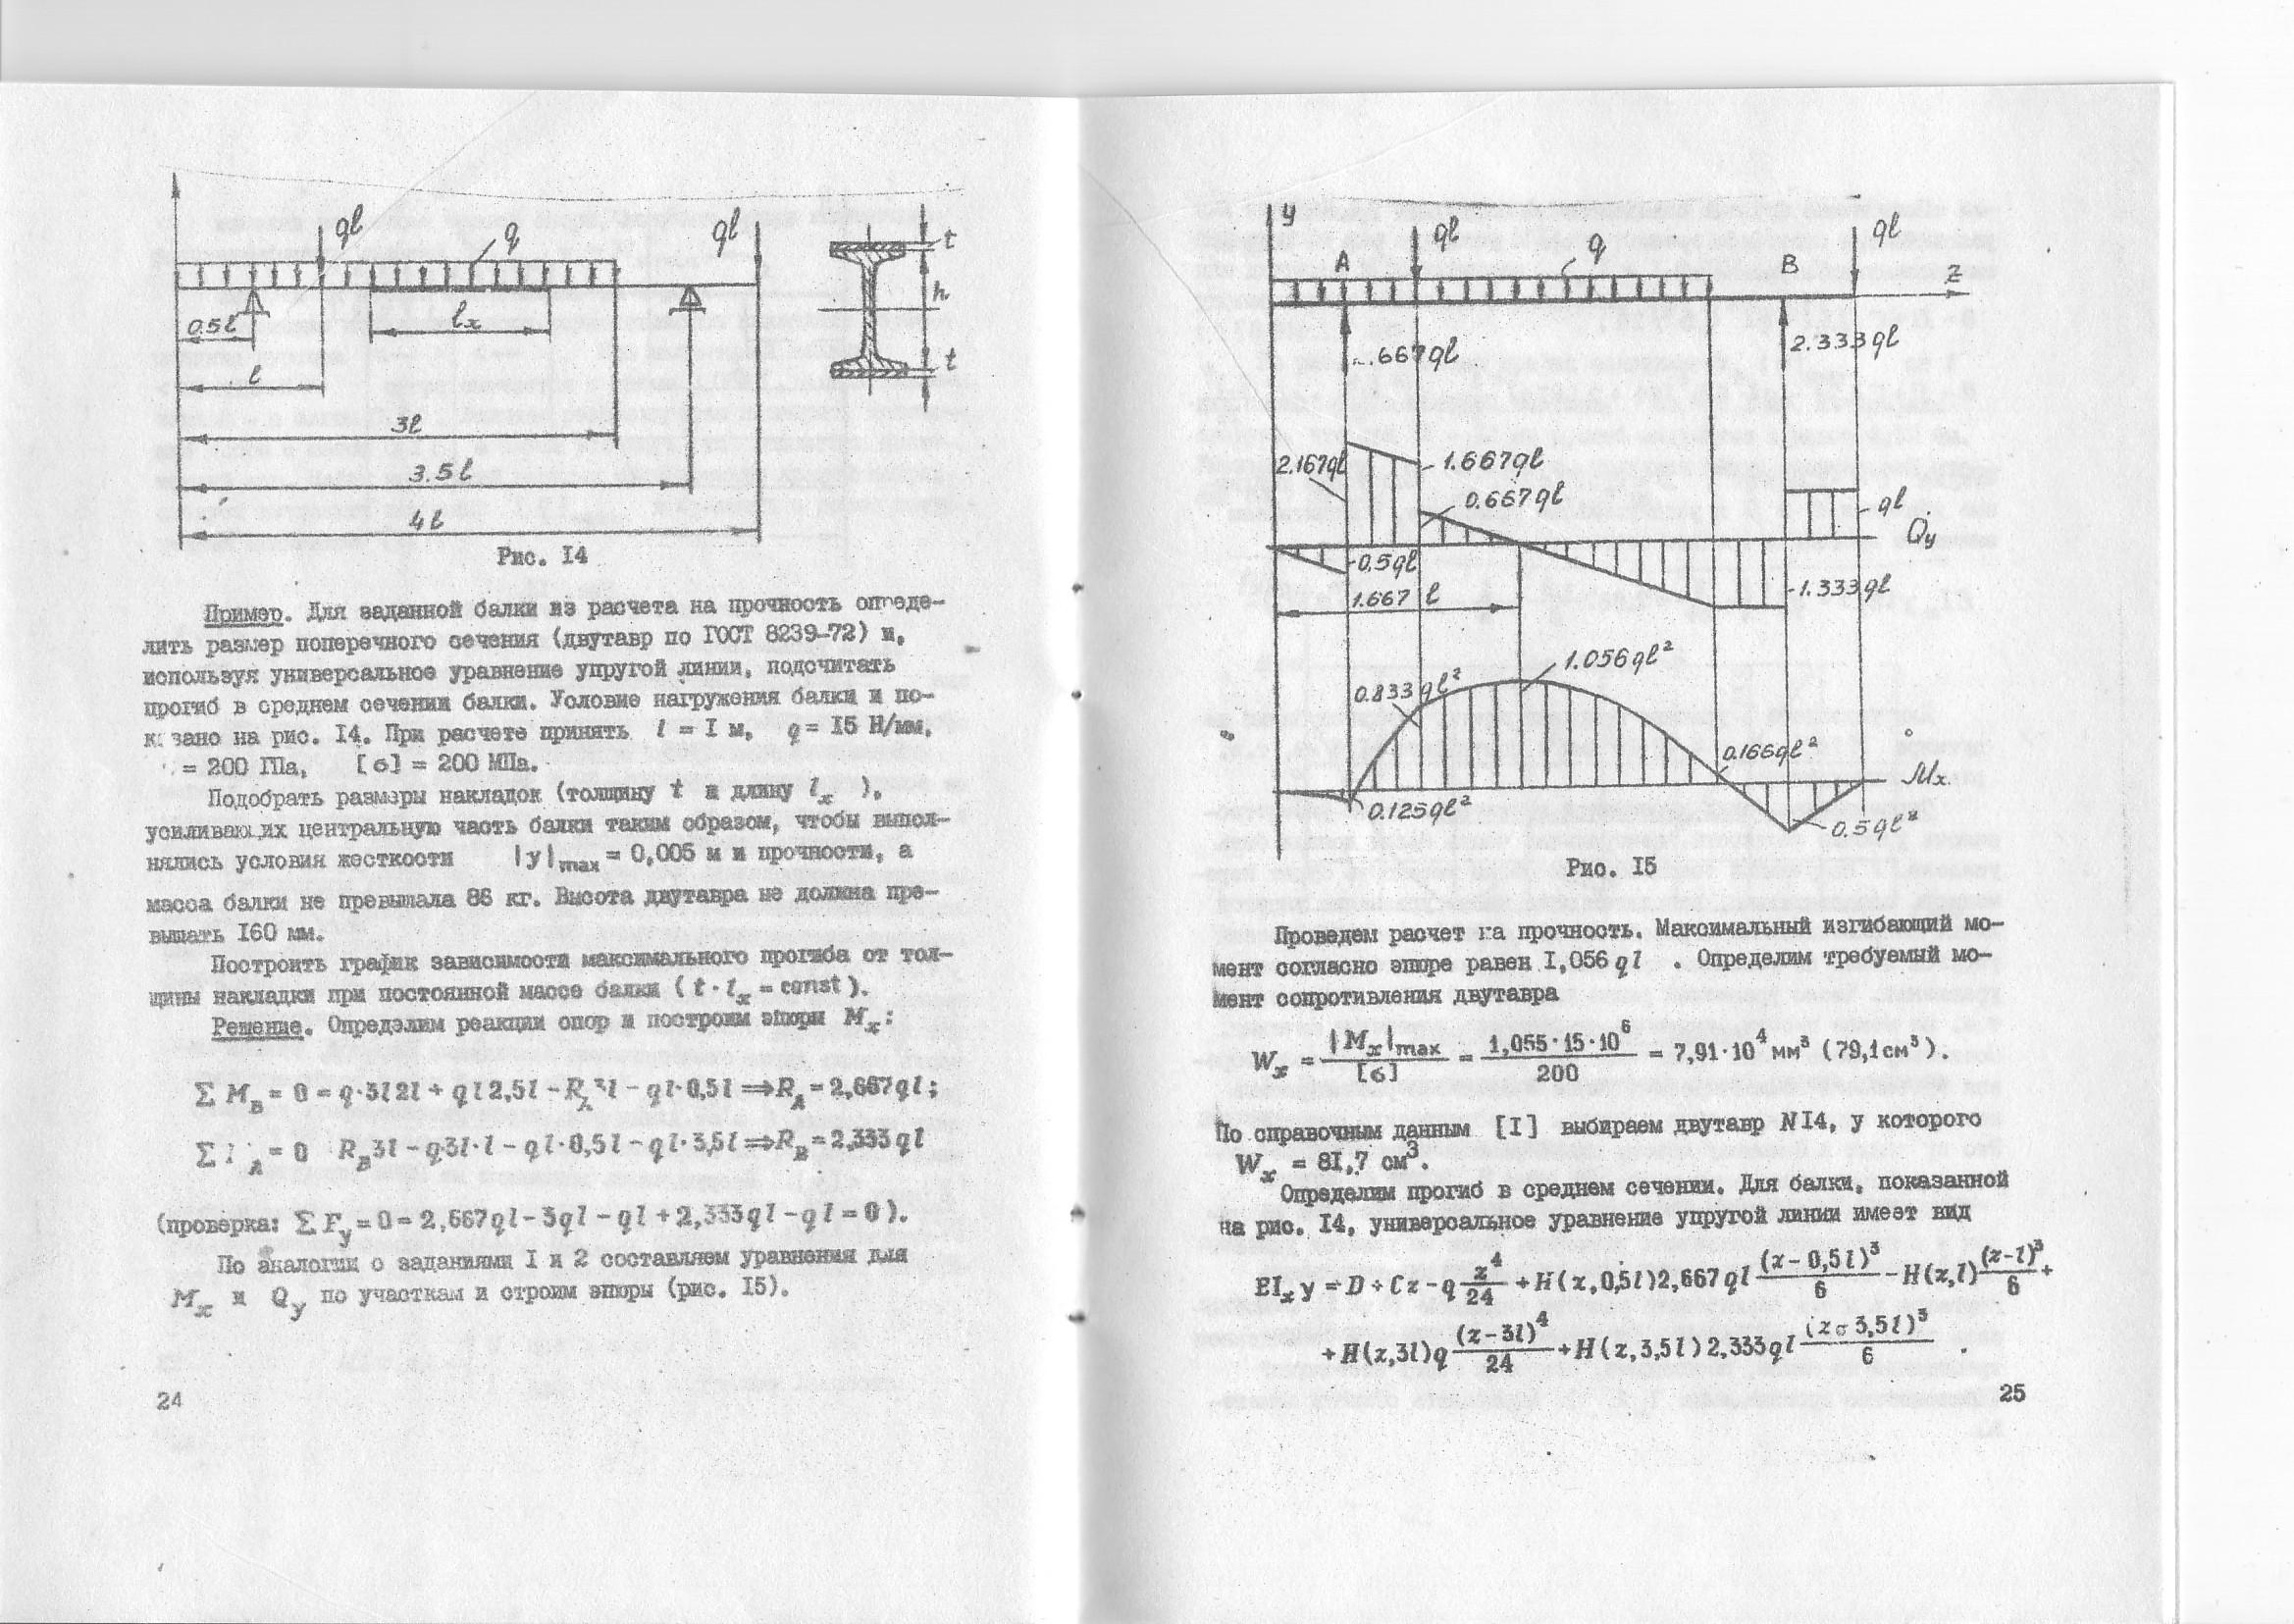 ql
q
ql
t
h
t
0.5l
lx
l
3l
3.5l
4l
Рис. I4
Пример. Для заданной балки из расчета на прочность опреде-
лить размер поперечного сечения (двутавр по ГОСТ 8239-72) и,
используя универсальное уравнение упругой линии, подсчитать
прогиб в среднем сечении балки. Условие нагружения балки и по-
казано на рис. I4. При расчете принять l = I м, q = I5 Н/мм,
= 200 ГПа, [σ] = 200 МПа.
Подобрать размеры накладок (толщину t и длину lx ),
усиливающих центральную часть балки таким образом, чтобы выпол-
нялись условия жесткости |y|max = 0,005 м и прочности, а
масса балки не превышала 86 кг. Высота двутавра не должна пре-
вышать I60 мм.
Построить график зависимости максимального прогиба от тол-
щины накладки при постоянной массе балки ( t · lx = const ).
Решение. Определим реакции опор и построим эпюры Mx:
Σ MB = 0 = q·3l2l + ql2,5l - RA3l - ql·0,5l ⇒ RA = 2,667ql;
Σ A = 0 RB3l - q3l·l - ql·0,5l - ql·3,5l ⇒ RB = 2,333ql
(проверка: Σ Fy = 0 = 2,667ql - 3ql - ql + 2,333ql - ql = 0 ).
По аналогии с заданиями I и 2 составляем уравнения для
Mx и Qy по участкам и строим эпюры (рис. I5).
24
y
ql
q
ql
A
B
z
.667ql
2.333ql
2.167ql
1.667ql
0.667ql
ql
Qy
0.5ql
1.333ql
1.667 l
1.056ql²
0.833ql²
0.166ql²
Mx
0.125ql²
0.5ql²
Рис. I5
Проведем расчет на прочность. Максимальный изгибающий мо-
мент согласно эпюре равен I,056 ql . Определим требуемый мо-
мент сопротивления двутавра
Wx = |Mx|max / [σ] = 1,055·15·10⁶ / 200 = 7,91·10⁴ мм³ (79,1 см³).
По справочным данным [I] выбираем двутавр N I4, у которого
Wx = 8I,7 см³.
Определим прогиб в среднем сечении. Для балки, показанной
на рис. I4, универсальное уравнение упругой линии имеет вид
EIx y = D + Cz - q z⁴/24 + H(z,0,5l)2,667ql (z-0,5l)³/6 - H(z,l) (z-l)³/6 +
+ H(z,3l)q (z-3l)⁴/24 + H(z,3,5l)2,333ql (z-3,5l)³/6 .
25